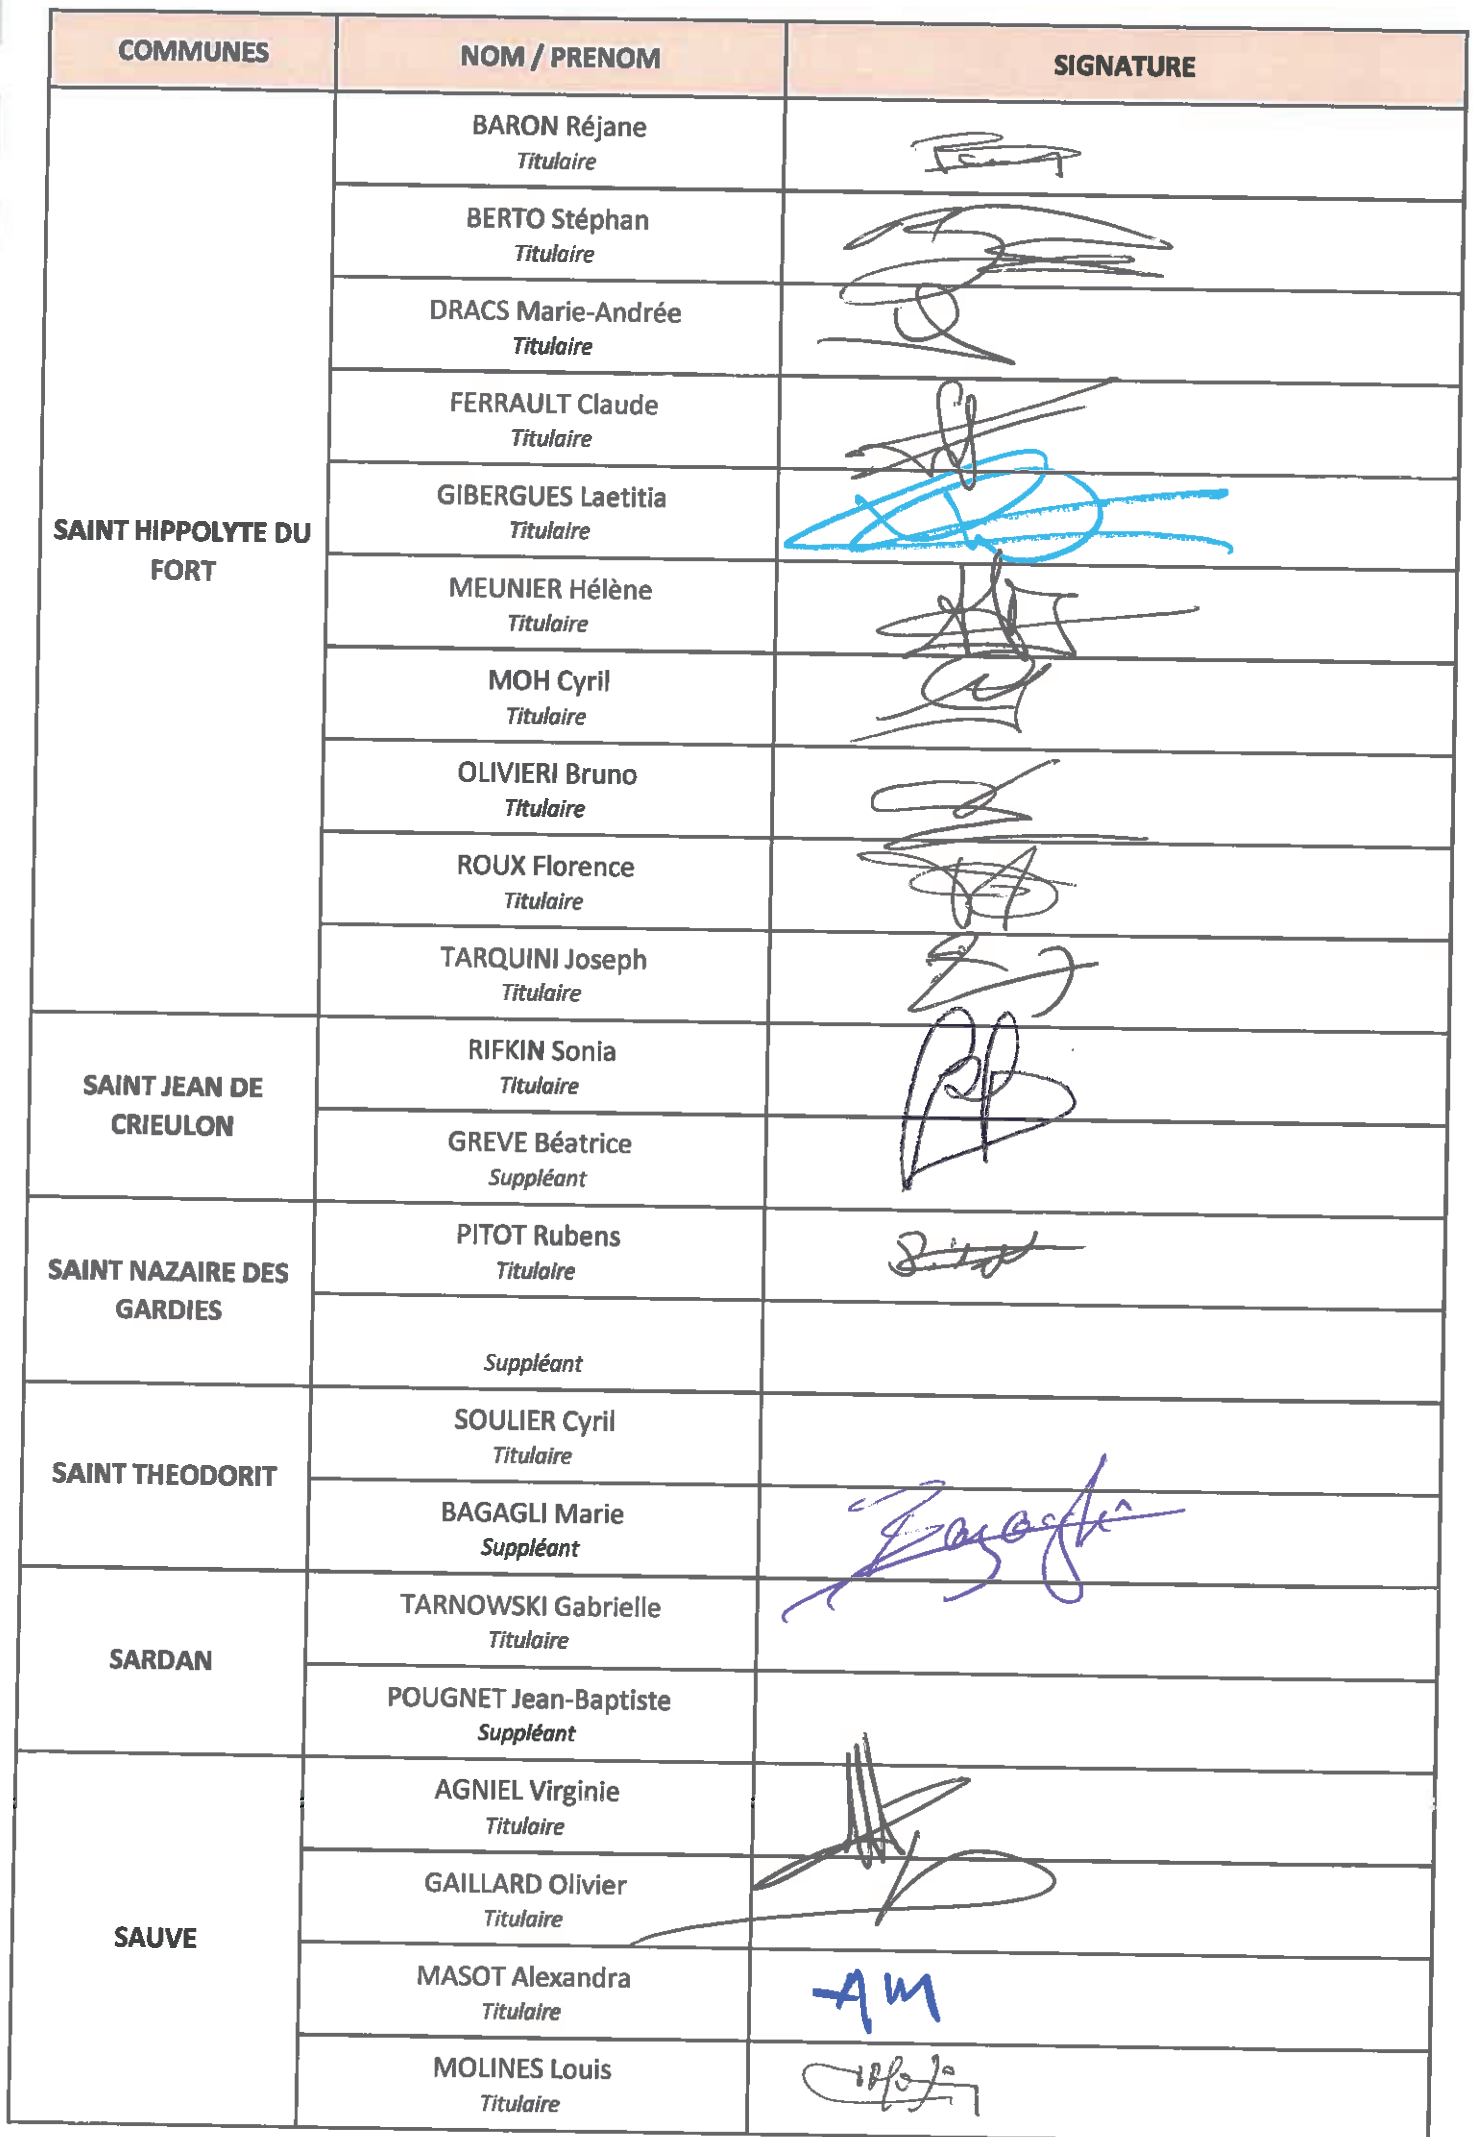 COMMUNES
NOM / PRENOM
SIGNATURE
SAINT HIPPOLYTE DU
FORT
BARON Réjane
Titulaire
BERTO Stéphan
Titulaire
DRACS Marie-Andrée
Titulaire
FERRAULT Claude
Titulaire
GIBERGUES Laetitia
Titulaire
MEUNIER Hélène
Titulaire
MOH Cyril
Titulaire
OLIVIERI Bruno
Titulaire
ROUX Florence
Titulaire
TARQUINI Joseph
Titulaire
SAINT JEAN DE
CRIEULON
RIFKIN Sonia
Titulaire
GREVE Béatrice
Suppléant
SAINT NAZAIRE DES
GARDIES
PITOT Rubens
Titulaire
Suppléant
SAINT THEODORIT
SOULIER Cyril
Titulaire
BAGAGLI Marie
Suppléant
Bagagli
SARDAN
TARNOWSKI Gabrielle
Titulaire
POUGNET Jean-Baptiste
Suppléant
SAUVE
AGNIEL Virginie
Titulaire
GAILLARD Olivier
Titulaire
MASOT Alexandra
Titulaire
AM
MOLINES Louis
Titulaire